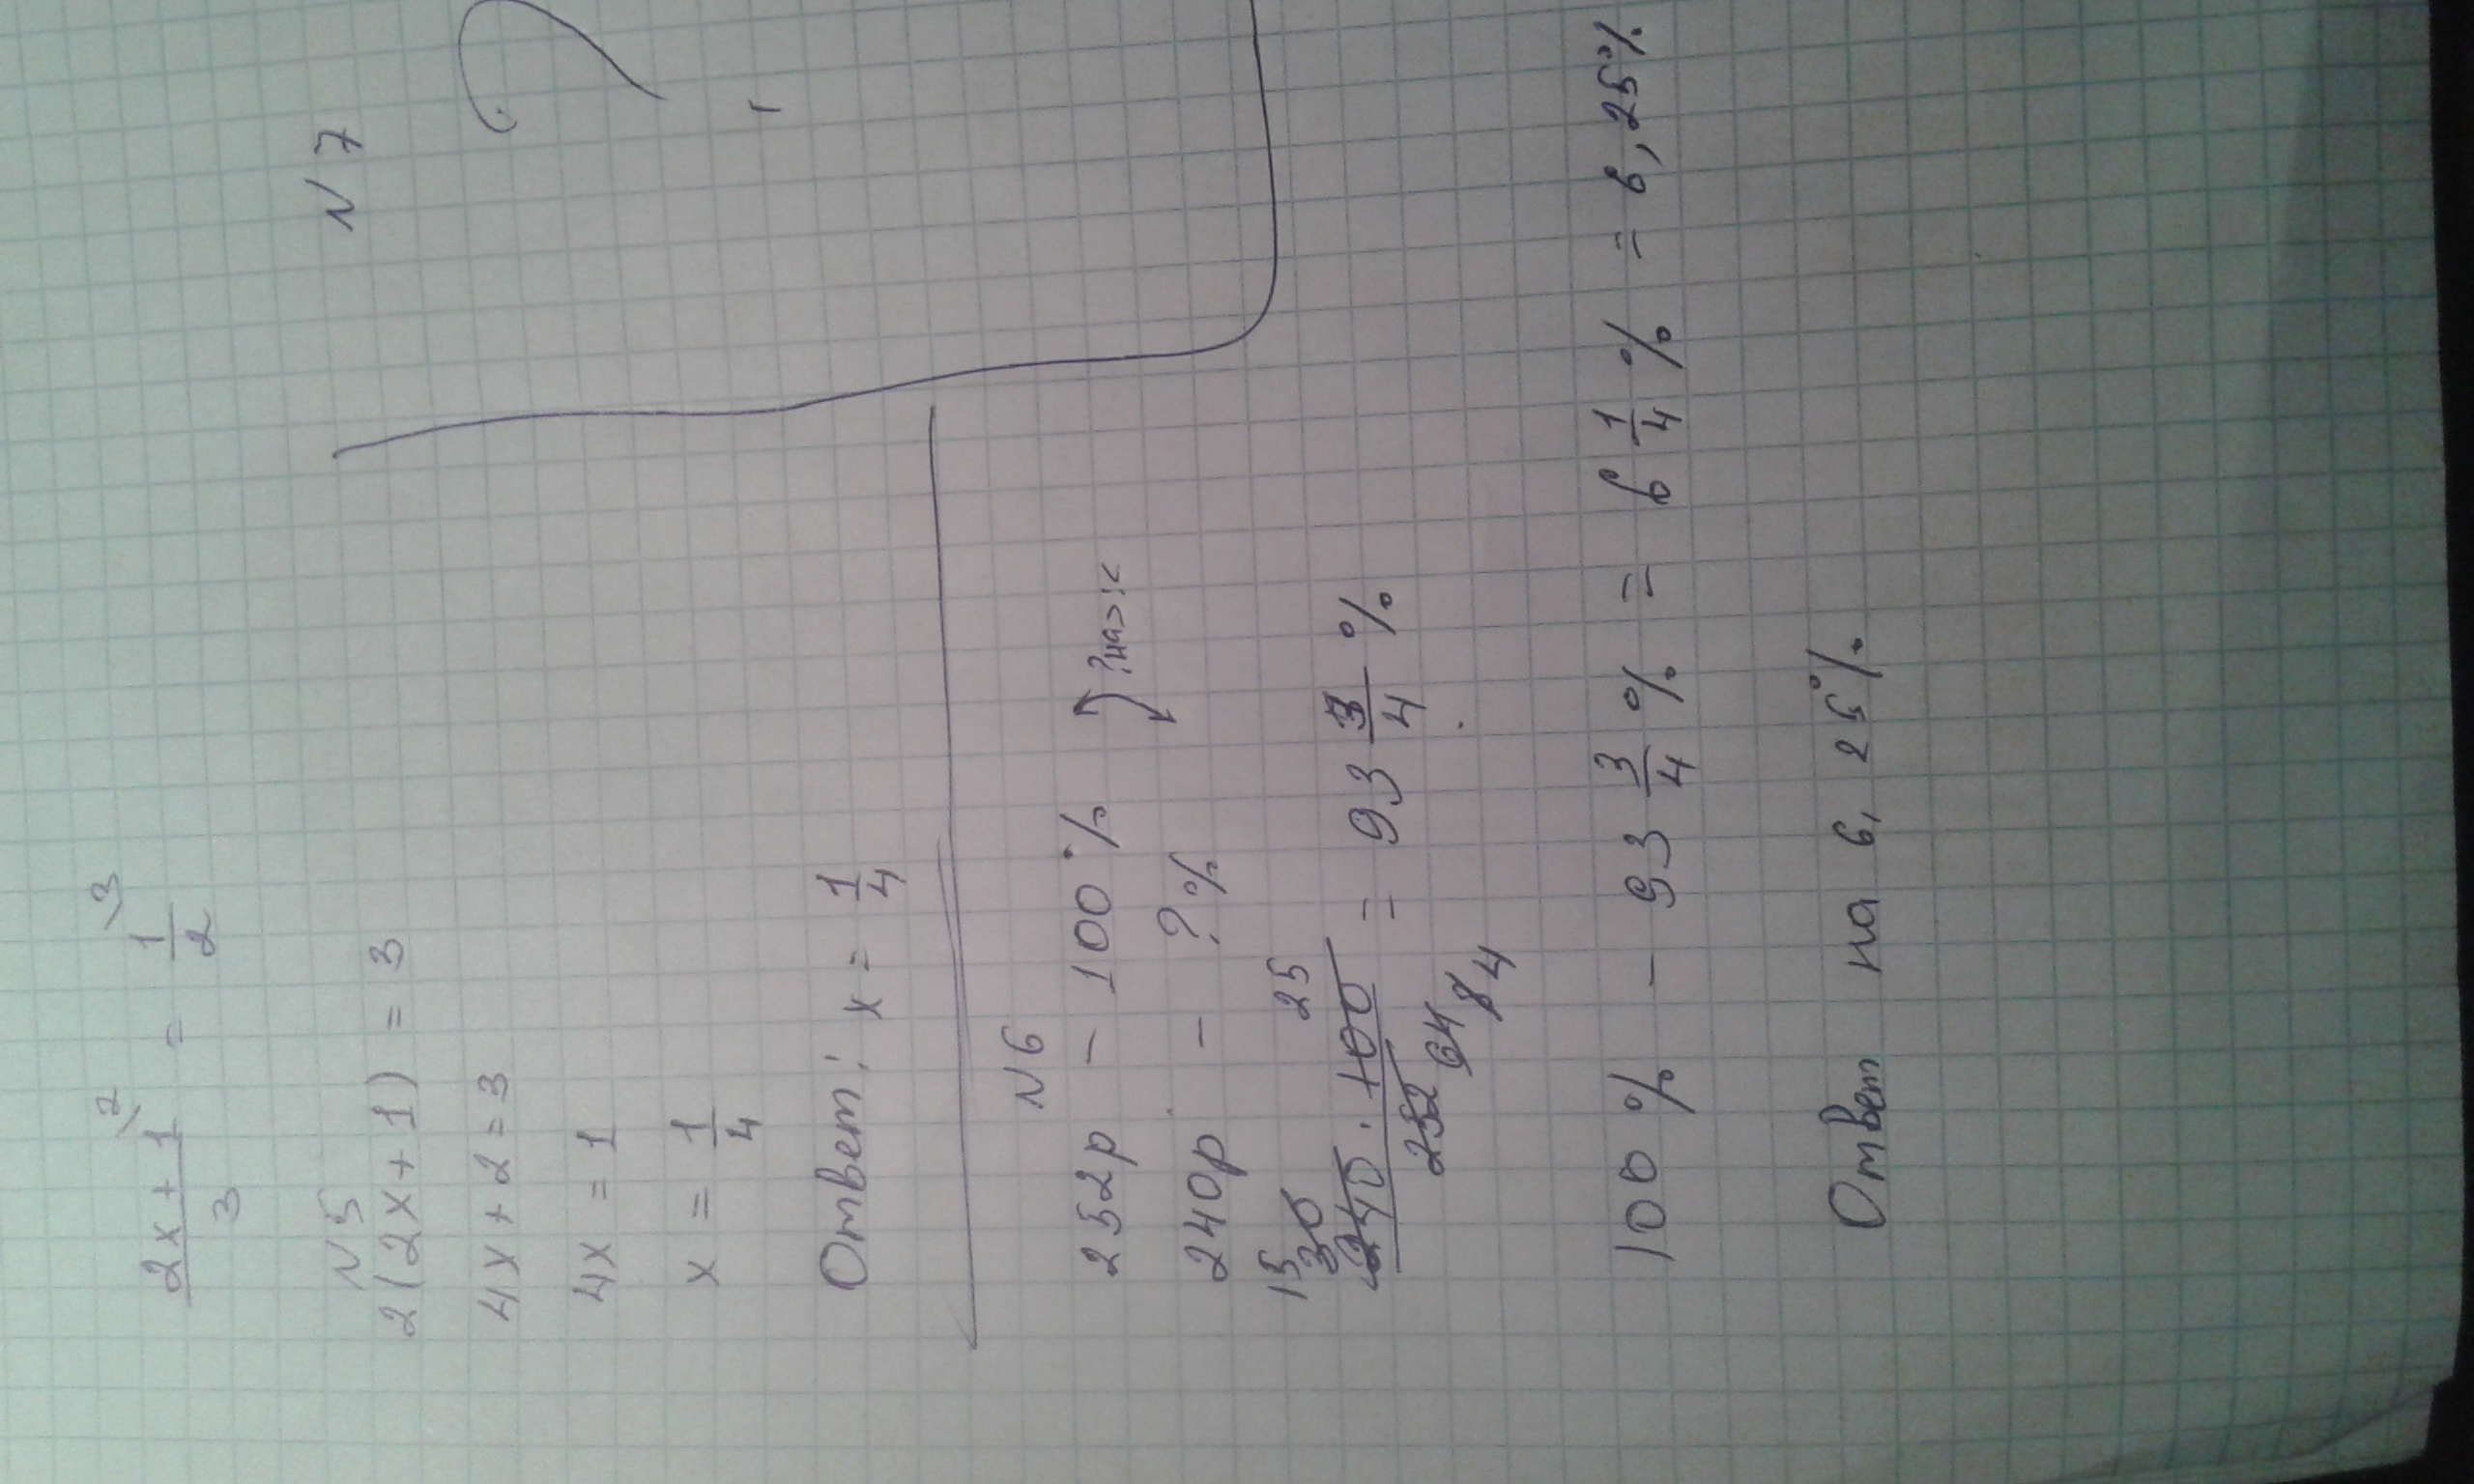 (2x + 1)/3 \2 = 1/2 \3
N5
2(2x+1) = 3
4x + 2 = 3
4x = 1
x = 1/4
Ответ: x = 1/4
N6
252р – 100% 
240р – ?%
? на >:<
15 30 25
240 · 100 / 252 64 8 4 = 93 3/4 %
100% – 93 3/4 % = 6 1/4 % = 6,25%
Ответ на 6,25%
N 7
?